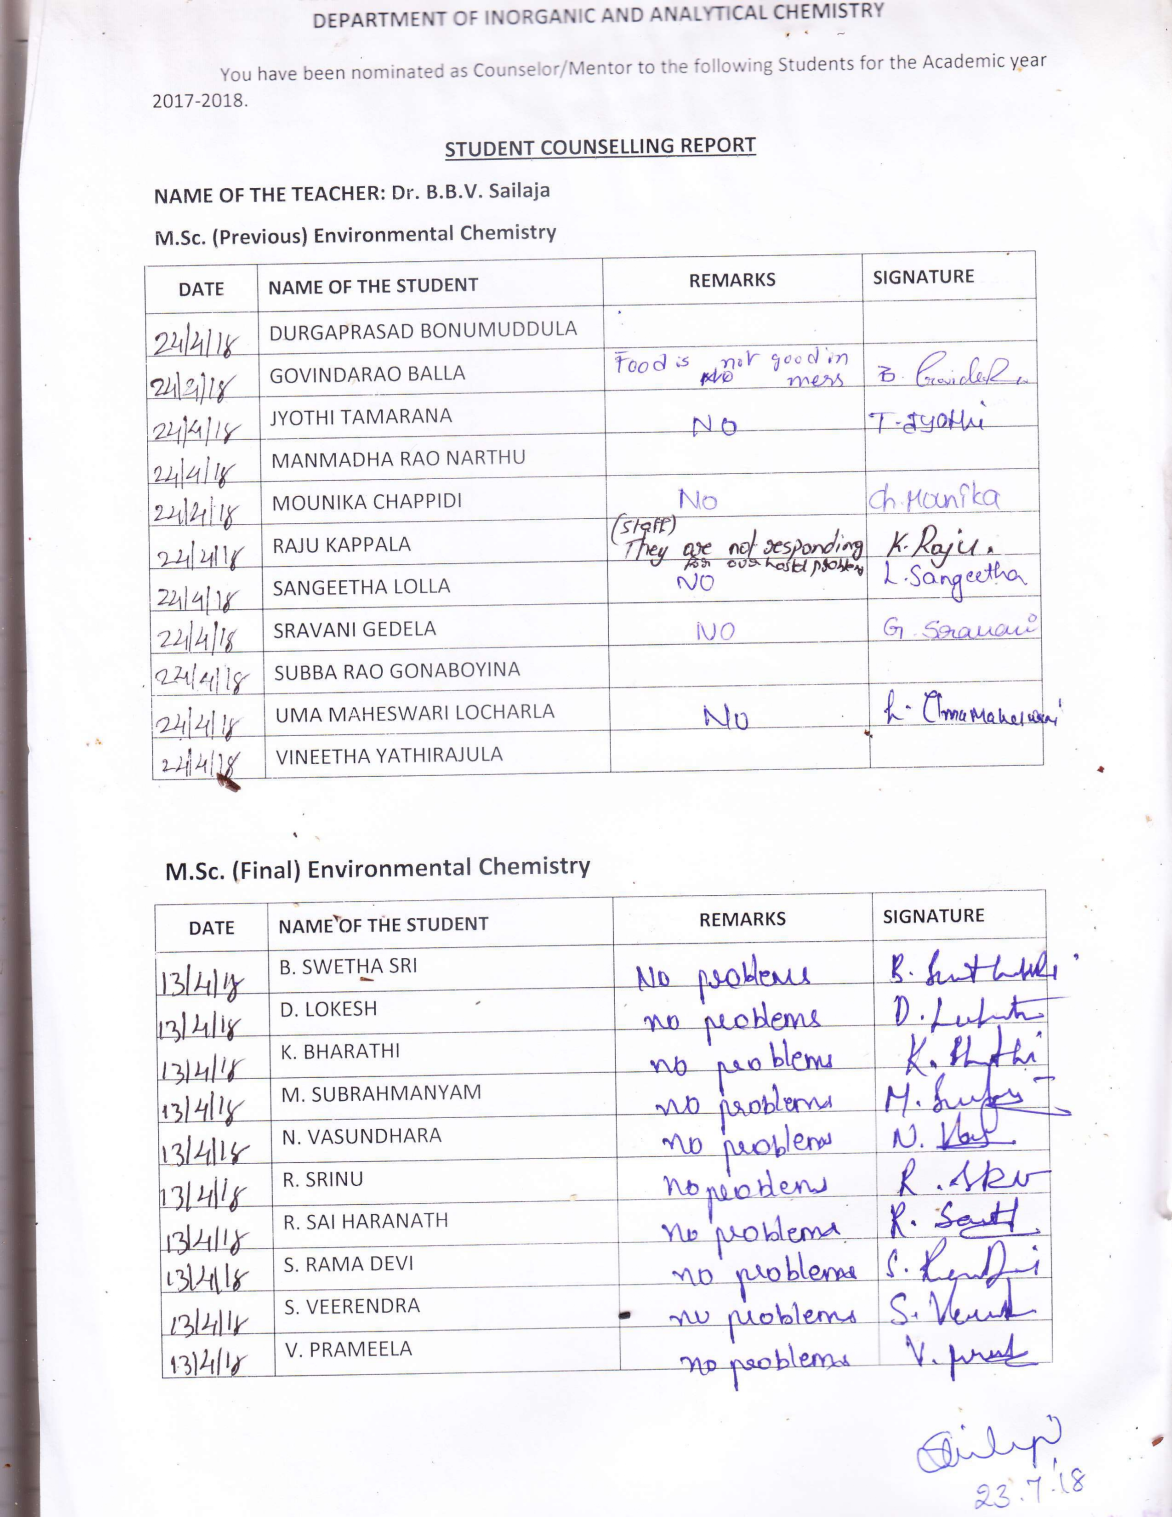 DEPARTMENT OF INORGANIC AND ANALYTICAL CHEMISTRY
You have been nominated as Counselor/Mentor to the following Students for the Academic year
2017-2018.
STUDENT COUNSELLING REPORT
NAME OF THE TEACHER: Dr. B.B.V. Sailaja
M.Sc. (Previous) Environmental Chemistry
DATE NAME OF THE STUDENT REMARKS SIGNATURE
24/4/18 DURGAPRASAD BONUMUDDULA
24/4/18 GOVINDARAO BALLA Food is not good in mess B.
24/4/18 JYOTHI TAMARANA NO T. Jyothi
24/4/18 MANMADHA RAO NARTHU
24/4/18 MOUNIKA CHAPPIDI No Ch. Mounika
24/4/18 RAJU KAPPALA (staff) They are not responding for our hostel problems K. Raju.
24/4/18 SANGEETHA LOLLA NO L. Sangeetha
24/4/18 SRAVANI GEDELA NO G. Sravani
24/4/18 SUBBA RAO GONABOYINA
24/4/18 UMA MAHESWARI LOCHARLA No L. Uma Maheswari
24/4/18 VINEETHA YATHIRAJULA
M.Sc. (Final) Environmental Chemistry
DATE NAME OF THE STUDENT REMARKS SIGNATURE
13/4/18 B. SWETHA SRI No problems B.
13/4/18 D. LOKESH no problems D.
13/4/18 K. BHARATHI no problems K.
13/4/18 M. SUBRAHMANYAM no problems M.
13/4/18 N. VASUNDHARA no problems N.
13/4/18 R. SRINU no problems R.
13/4/18 R. SAI HARANATH no problems R.
13/4/18 S. RAMA DEVI no problems S.
13/4/18 S. VEERENDRA no problems S.
13/4/18 V. PRAMEELA no problems V.
23.7.18